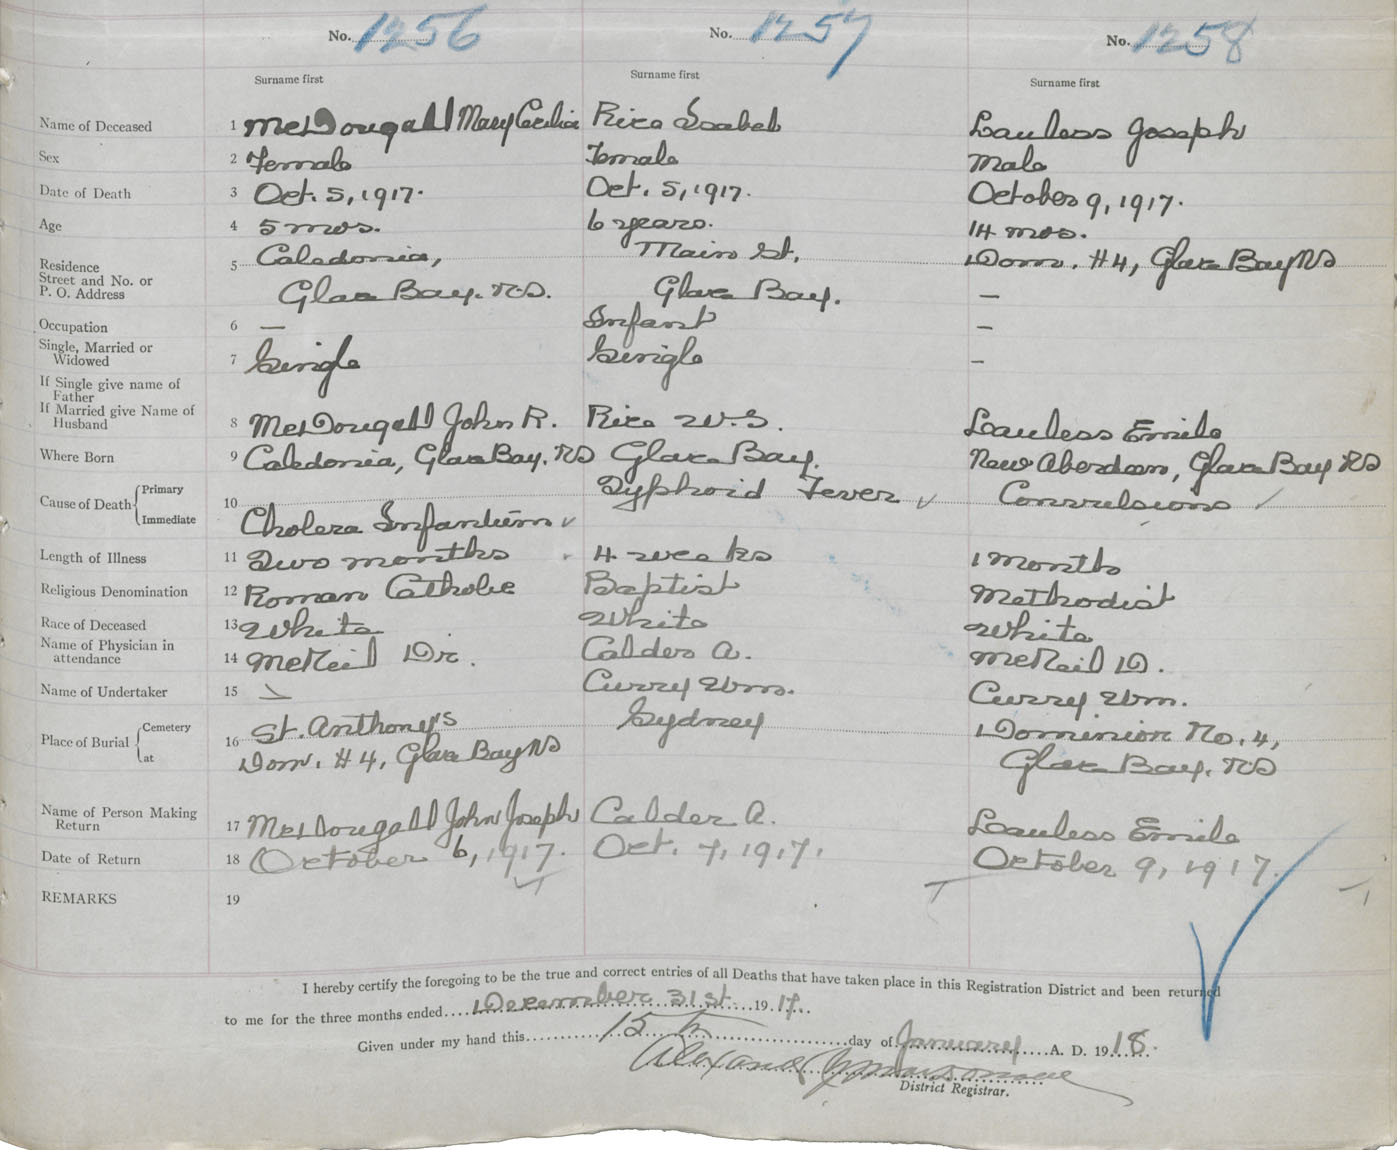 No. 1256 No. 1257 No. 1258
Surname first Surname first Surname first
Name of Deceased 1 McDougall Mary Cecilia Rice Isabel Lauless Joseph
Sex 2 Female Female Male
Date of Death 3 Oct. 5, 1917. Oct. 5, 1917. October 9, 1917.
Age 4 5 mos. 6 years. 14 mos.
Residence 5 Caledonia, Main St. Dom. #4, Glace Bay NS
Street and No. or
P. O. Address Glace Bay. N.S. Glace Bay. —
Occupation 6 — Infant —
Single, Married or
Widowed 7 Single Single —
If Single give name of
Father
If Married give Name of
Husband 8 McDougall John R. Rice W. S. Lauless Emile
Where Born 9 Caledonia, Glace Bay. NS Glace Bay. New Aberdeen, Glace Bay NS
Cause of Death { Primary 10 Typhoid Fever ✓ Convulsions ✓
Immediate Cholera Infantum ✓
Length of Illness 11 Two months 4 weeks 1 Month
Religious Denomination 12 Roman Catholic Baptist Methodist
Race of Deceased 13 White White White
Name of Physician in
attendance 14 McNeil Dr. Calder A. McNeil D.
Name of Undertaker 15 Curry Wm. Curry Wm.
Place of Burial { Cemetery 16 St. Anthony's Sydney Dominion No. 4,
at Dom. #4, Glace Bay NS Glace Bay. NS
Name of Person Making
Return 17 McDougall John Joseph Calder A. Lauless Emile
Date of Return 18 October 6, 1917. Oct. 7, 1917. October 9, 1917.
REMARKS 19
I hereby certify the foregoing to be the true and correct entries of all Deaths that have taken place in this Registration District and been returned
to me for the three months ended December 31st 1917.
Given under my hand this 15th day of January A. D. 1918.
District Registrar.